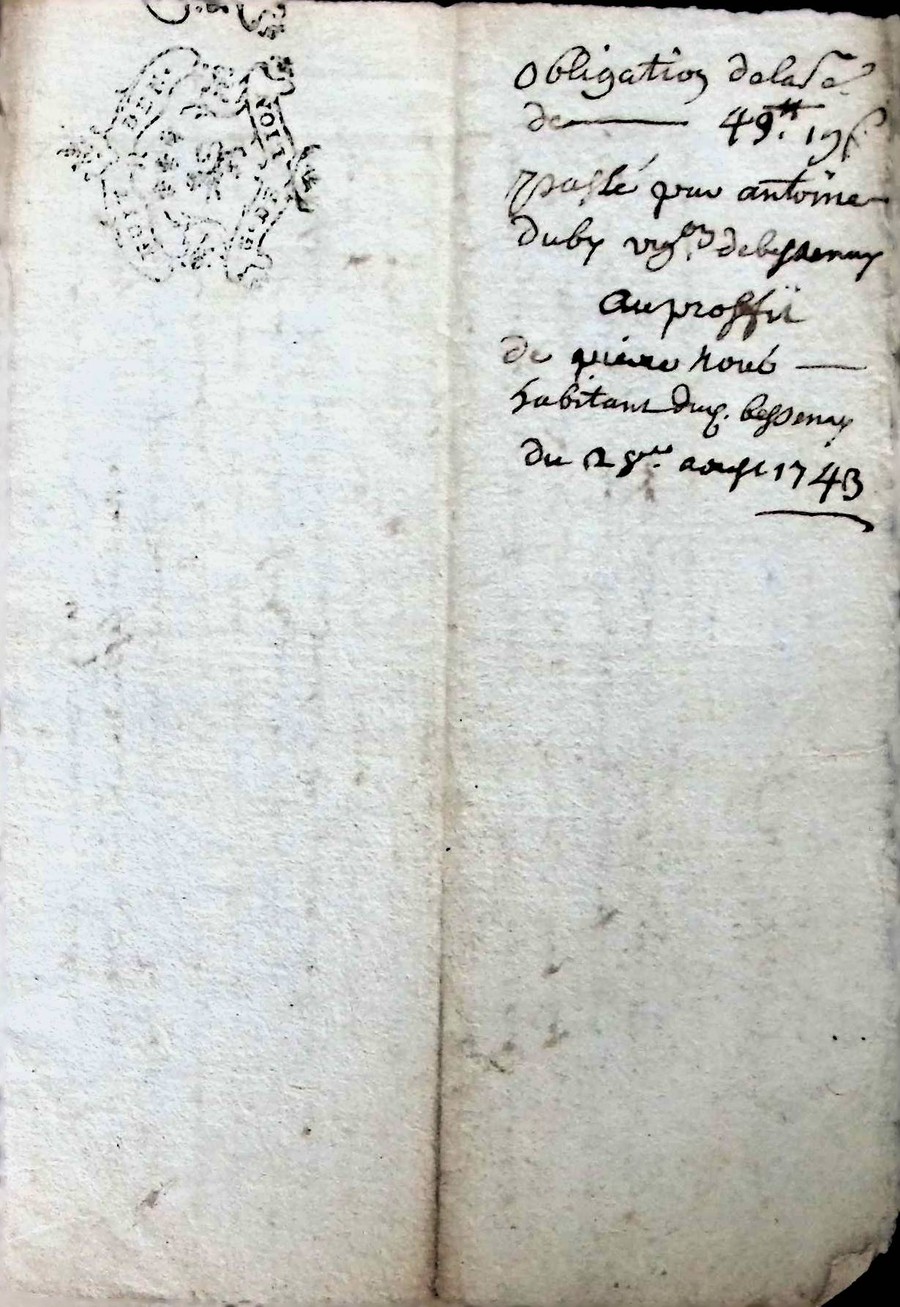 obligation dela so.e
de ——— 49.tt 19s
passé par antoine
duby vig.on debessenay
au proffit
de pierre
habitant dud. bessenay
du 28.me aoust 1743